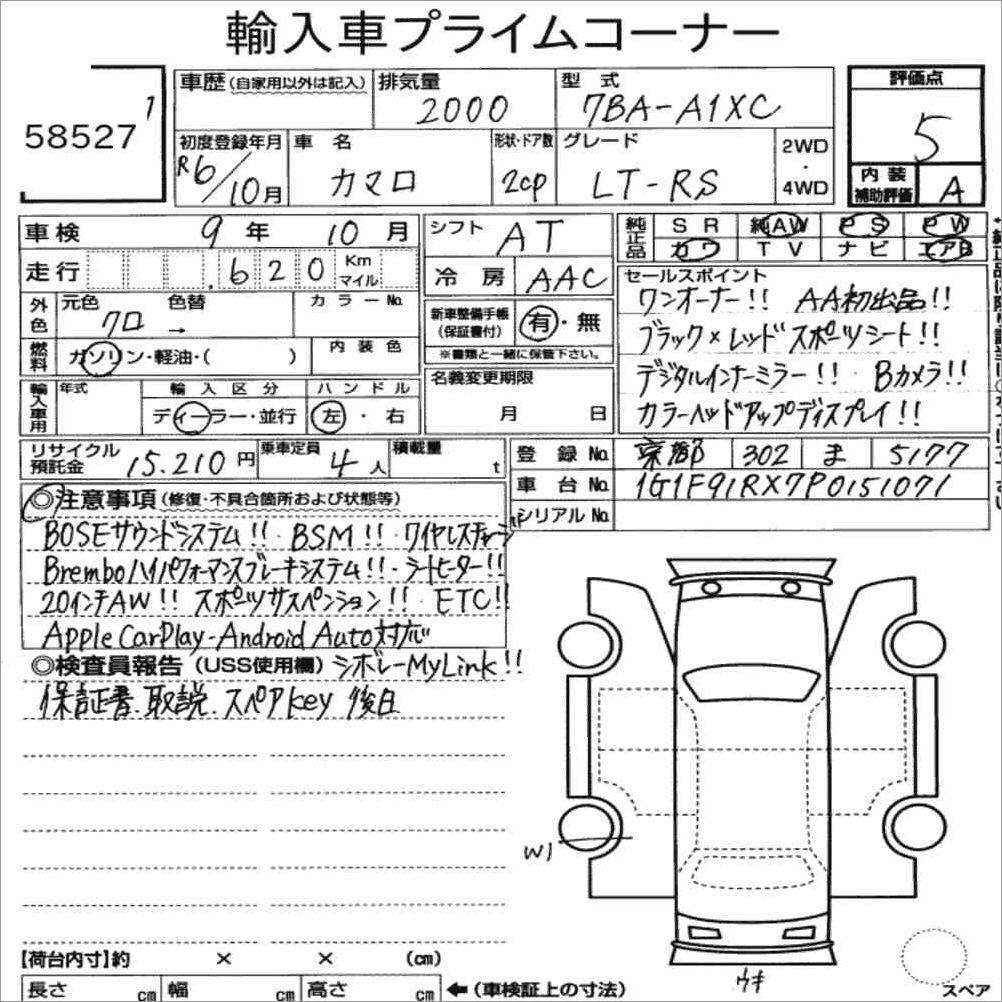 輸入車プライムコーナー
58527 1
車歴(自家用以外は記入) 排気量 2000 型式 7BA-A1XC
評価点 5
初度登録年月 R6/10月 車名 カマロ 形状・ドア数 2cp グレード LT-RS 2WD・4WD
内装補助評価 A
車検 9年 10月 シフト AT
純正品 SR 純AW PS PW
カワ TV ナビ エアB
走行 .620 Km マイル 冷房 AAC
セールスポイント
ワンオーナー!! AA初出品!!
外色 元色 クロ 色替 → カラーNo.
新車整備手帳(保証書付) 有・無
※書類と一緒に保管下さい。
ブラック×レッドスポーツシート!!
燃料 ガソリン・軽油・( ) 内装色
デジタルインナーミラー!! Bカメラ!!
輸入車用 年式 輸入区分 ディーラー・並行 ハンドル 左・右
名義変更期限 月 日
カラーヘッドアップディスプレイ!!
リサイクル預託金 15.210円 乗車定員 4人 積載量 t
登録No. 京都 302 ま 5177
車台No. 1G1F91RX7P0151071
シリアルNo.
◎注意事項(修復・不具合箇所および状態等)
BOSEサウンドシステム!! BSM!! ワイヤレスチャージ
Bremboハイパフォーマンスブレーキシステム!!・シートヒーター!!
20インチAW!! スポーツサスペンション!! ETC!!
Apple CarPlay-Android Auto対応
◎検査員報告(USS使用欄) シボレーMyLink!!
保証書.取説.スペアkey 後日
W1
【荷台内寸】約 × × (cm)
長さ cm 幅 cm 高さ cm ←(車検証上の寸法)
ウキ
スペア